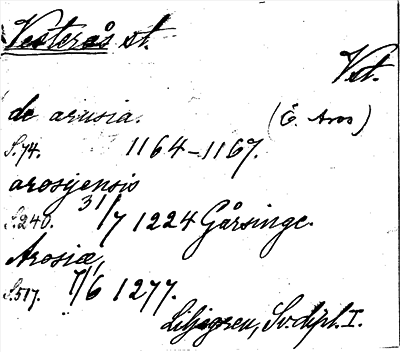 Vesterås st.
Vst.
de arusia. (Ö. Aros)
S.74. 1164-1167.
arosyensis
S.240. 31/7 1224 Gårsinge.
Arosiæ,
S.517. 7/6 1277.
Liljegren, Sv. dipl. I.